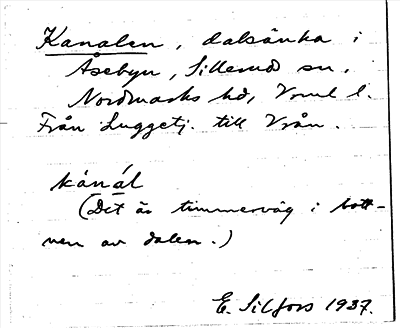 Kanalen, dalsänka i
Åsebyn, Sillerud sn,
Nordmarks hd, Vrml l.
Från Luggetj. till Vrån.
kànál
(Det är timmerväg i bott-
nen av dalen.)
E. Silfors 1937.